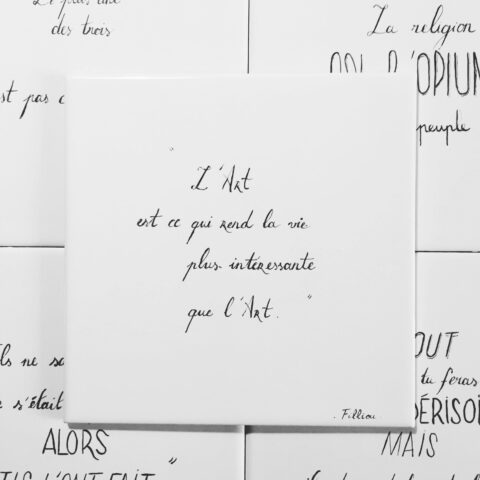 des trois
st pas
La religion
L'OPIUM
peuple
"L'Art
est ce qui rend la vie
plus intéressante
que l'Art."
. Filliou.
ils ne sa
s'était
ALORS
ILS L'ONT FAIT"
OUT
tu feras
DÉRISOI
MAIS